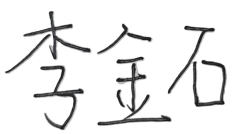 李金石